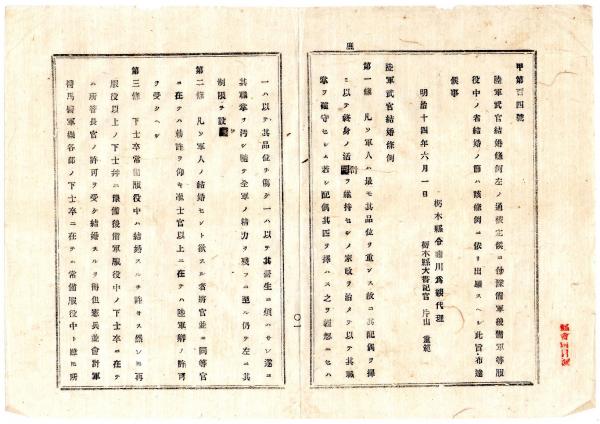 甲第百四號
陸軍武官結婚條例左ノ通被定候ニ付豫備軍後備軍等服
役中ノ者結婚ノ節ハ該條例ニ依リ出願スヘシ此旨布達
候事
明治十四年六月一日
栃木縣令 川爲 代理
栃木縣大書記官 片山重範
陸軍武官結婚條例
第一條 凡ソ軍人ハ最モ其品位ヲ重ンス故ニ其配偶ヲ擇
ミ以テ終身ノ活 ヲ維持セシメ家政ヲ治メテ以テ其職
掌ヲ確守セシム若シ配偶其匹ヲ擇ハス之ヲ輕忽ニセハ
一ハ以テ其品位ヲ傷テ一ハ以テ其養生ニ煩ハサレ遂ニ
其職掌ヲ汚シ馳テ全軍ノ精力ヲ殘フニ至ル仍テ左ニ其
制限ヲ設
第二條 凡ソ軍人ノ結婚セント欲スル者將官並ニ同等官
ニ在テハ勅許ヲ仰キ准士官以上ニ在テハ陸軍卿ノ許可
ヲ受クヘシ
第三條 下士卒常備服役中ハ結婚スルヲ許サス然レ𪜈再
服役以上ノ下士并ニ豫備後備軍服役中ノ下士卒ニ在テ
ハ所管長官ノ許可ヲ受ケ結婚スルヲ得但憲兵並會計軍
醫馬醫軍樂各部ノ下士卒ニ在テハ常備服役中ト雖𪜈所
〇一